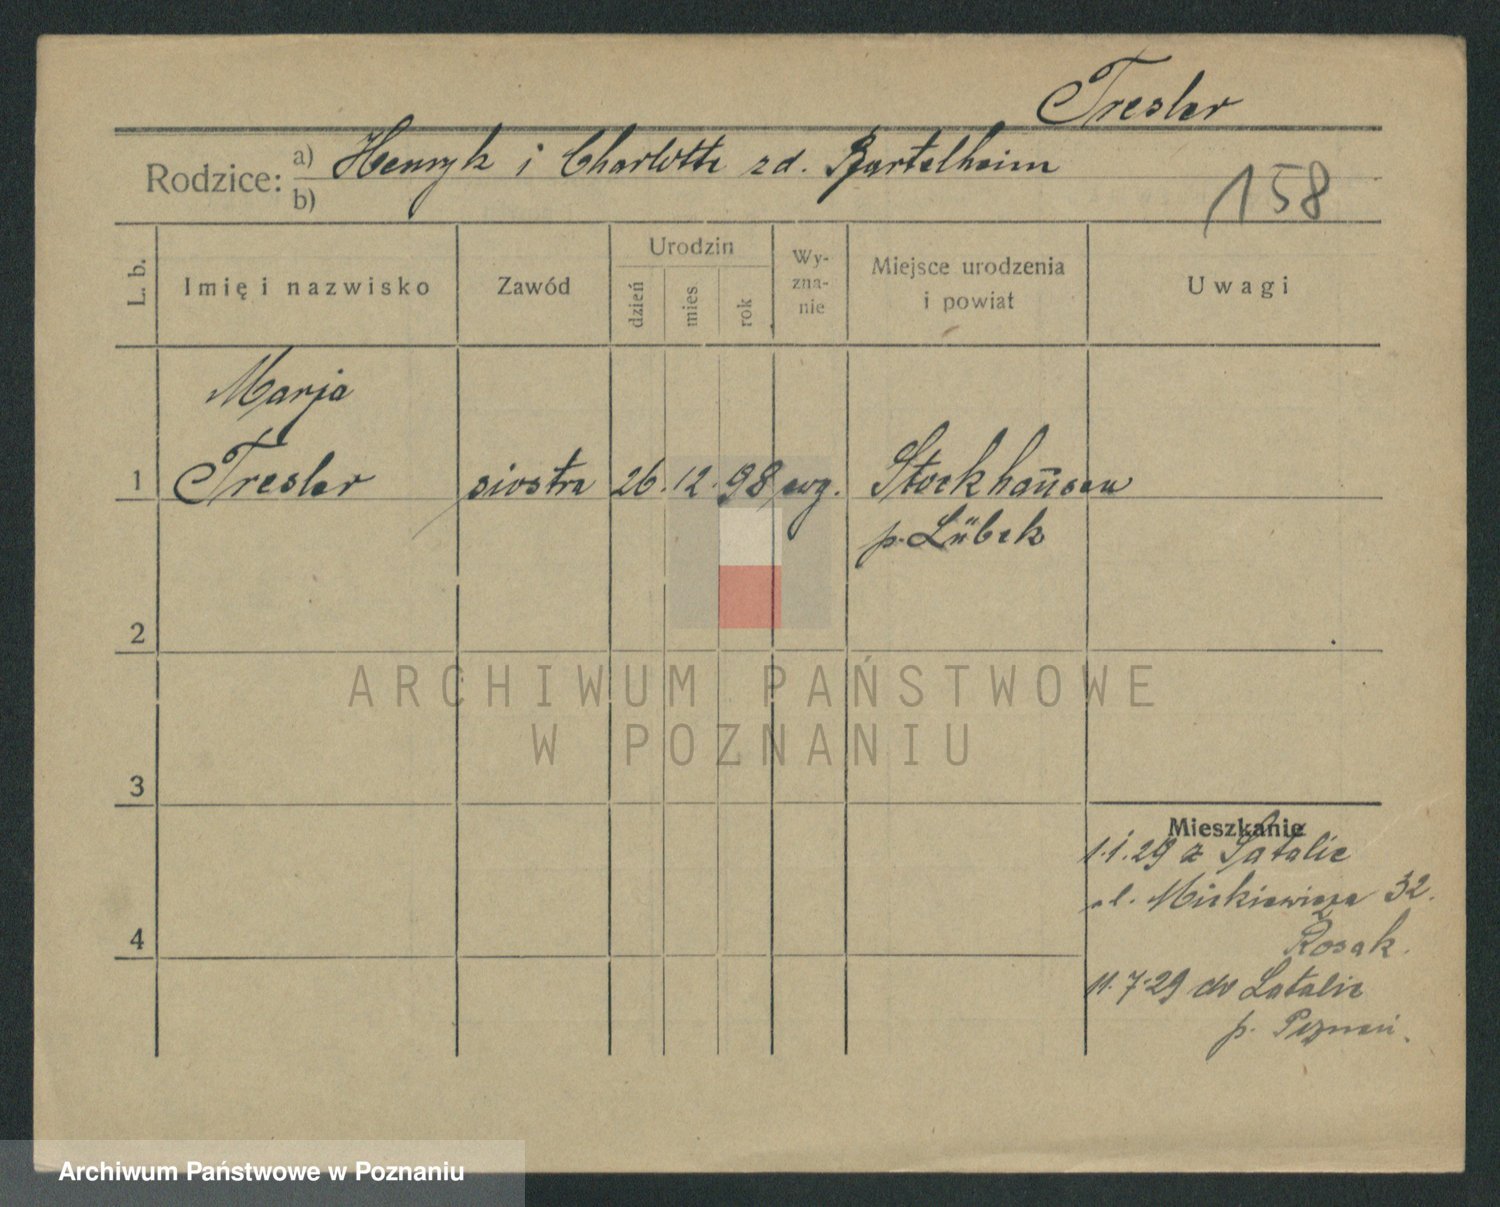 Tresler
Rodzice: a) Henryk i Charlotte zd. Bartelheim
b)
158
L. b.
Imię i nazwisko
Zawód
Urodzin
dzień
mies.
rok
Wy-
zna-
nie
Miejsce urodzenia
i powiat
Uwagi
Marja
1 Tresler siostra 26. 12. 98 ewg. Stockhausen
p. Lübek
2
ARCHIWUM PAŃSTWOWE
W POZNANIU
3
Mieszkanie
1.1.29 z Latalic
ul. Mickiewicza 32.
Rosak.
4
11.7.29 do Latalic
p. Poznań.
Archiwum Państwowe w Poznaniu